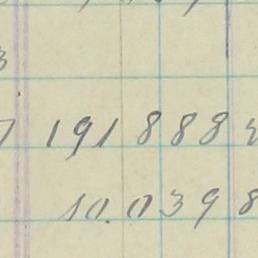 191 888
10.0398